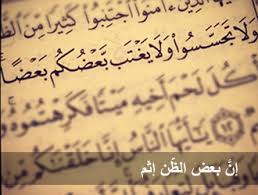 ءَامَنُوا۟ ٱجْتَنِبُوا۟ كَثِيرًا مِّنَ ٱلظَّ
وَلَا تَجَسَّسُوا۟ وَلَا يَغْتَب بَّعْضُكُم بَعْضًا
كُلَ لَحْمَ أَخِيهِ مَيْتًا فَكَرِهْتُمُوهُ
يَٰٓأَيُّهَا ٱلنَّاسُ إِنَّا خَلَقْنَٰكُم
إنَّ بعض الظَن إثم